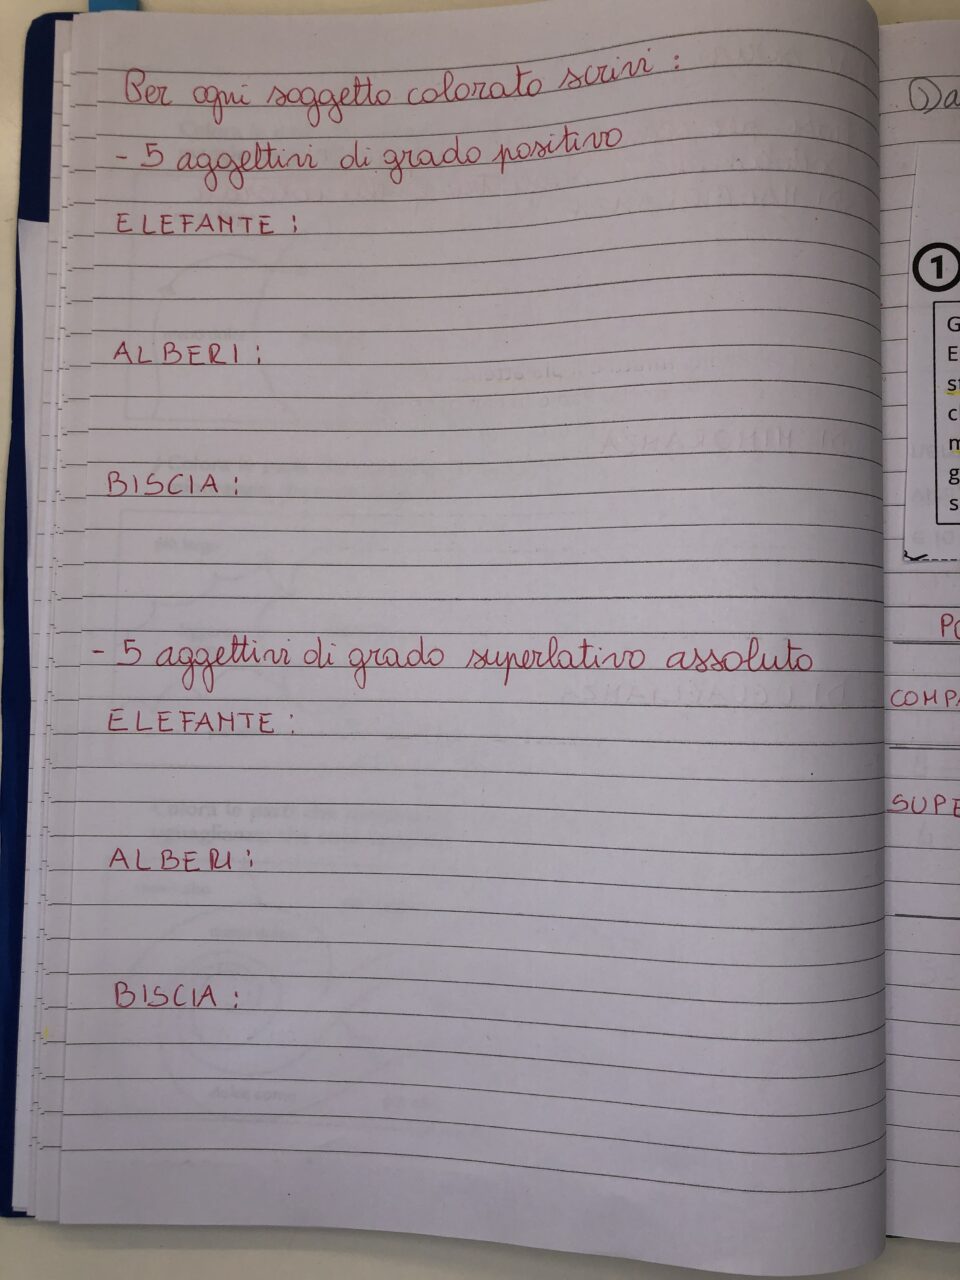 Per ogni soggetto colorato scrivi:
- 5 aggettivi di grado positivo
ELEFANTE:
ALBERI:
BISCIA:
- 5 aggettivi di grado superlativo assoluto
ELEFANTE:
ALBERI:
BISCIA:
1
COMPA
SUPE